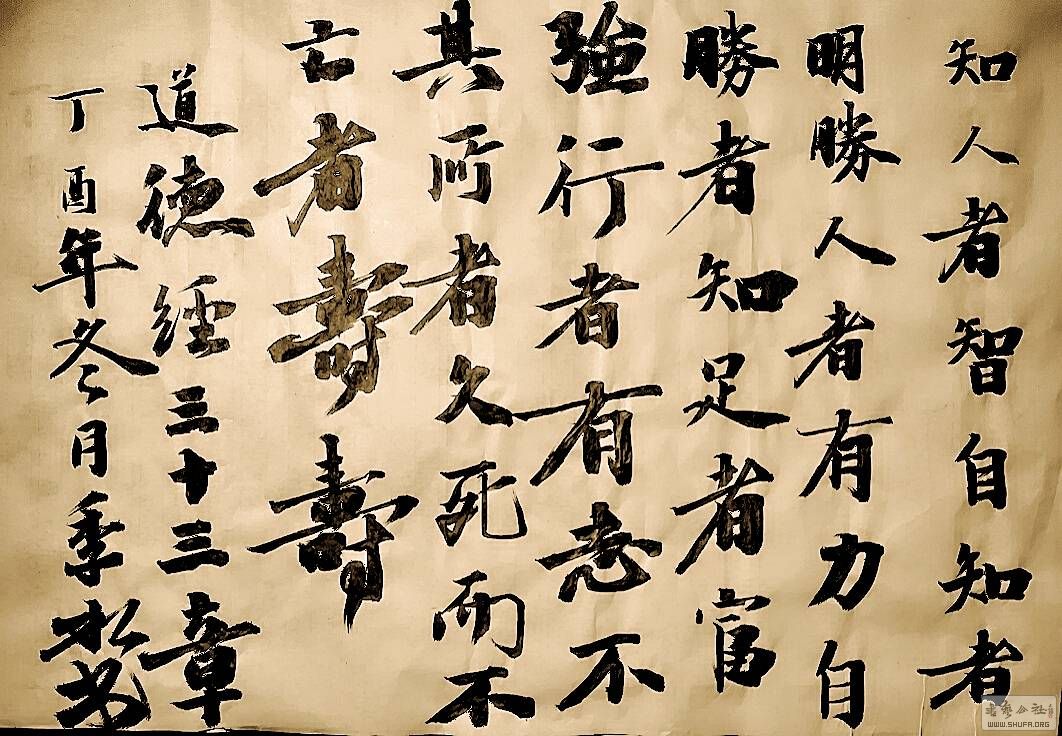 知人者智自知者
明勝人者有力自
勝者知足者富
強行者有志不
其所者久死而不
亡者壽壽
道德經三十三章
丁酉年冬月季松书
書藝公社
WWW.SHUFA.ORG